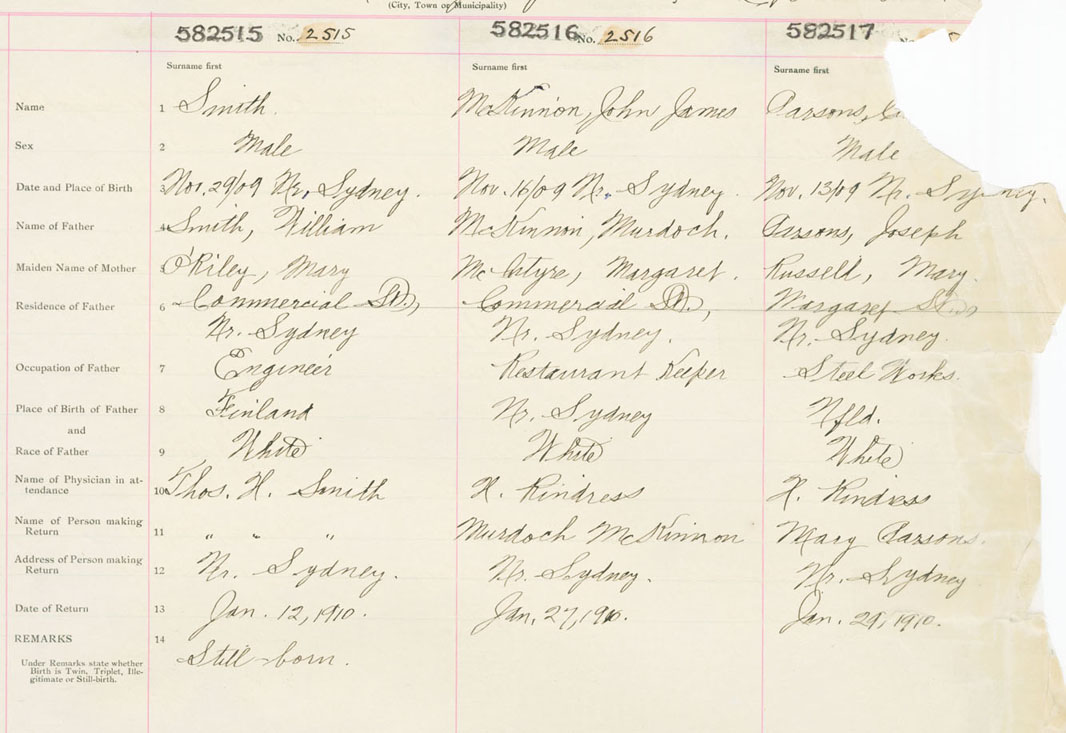 (City, Town or Municipality)
582515 No. 2515 582516 No. 2516 582517
Surname first Surname first Surname first
Name 1 Smith. McKinnon, John James Parsons,
Sex 2 Male Male Male
Date and Place of Birth 3 Nov. 29/09 Nr. Sydney. Nov. 16/09 Nr. Sydney Nov. 13/09 Nr. Sydney.
Name of Father 4 Smith, William McKinnon, Murdoch. Parsons, Joseph
Maiden Name of Mother 5 O'Riley, Mary McIntyre, Margaret. Russell, Mary.
Residence of Father 6 Commercial St., Commercial St., Margaret St.,
Nr. Sydney Nr. Sydney. Nr. Sydney.
Occupation of Father 7 Engineer Restaurant Keeper Steel Works.
Place of Birth of Father 8 Finland Nr. Sydney Nfld.
and
Race of Father 9 White White White
Name of Physician in at-
tendance 10 Thos. H. Smith H. Kindress H. Kindress
Name of Person making
Return 11 " " " Murdoch McKinnon Mary Parsons.
Address of Person making
Return 12 Nr. Sydney. Nr. Sydney. Nr. Sydney
Date of Return 13 Jan. 12, 1910. Jan. 27, 1910. Jan. 29, 1910.
REMARKS 14
Still-born.
Under Remarks state whether
Birth is Twin, Triplet, Ille-
gitimate or Still-birth.